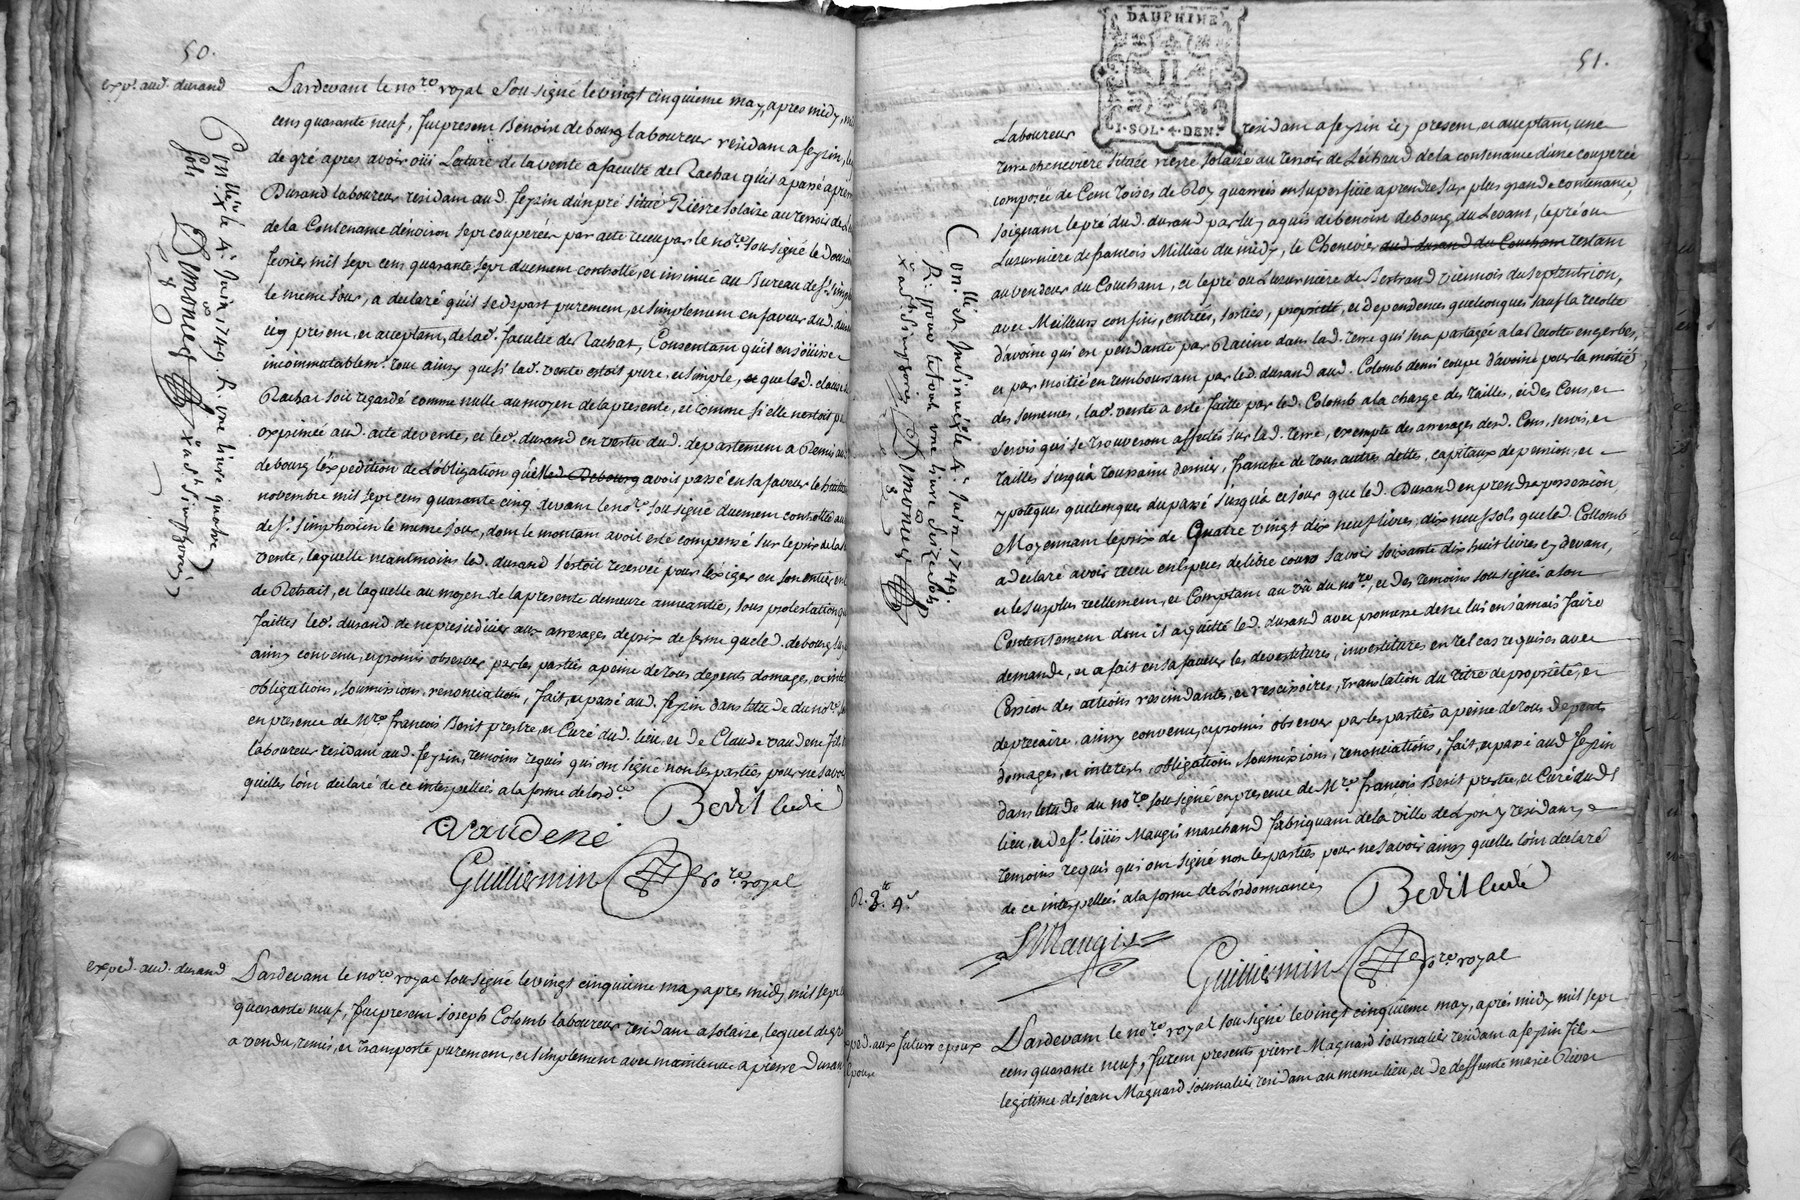 50.
exp.é aud. durand
Pardevant le no.re royal Sousigné le vingt cinquieme may, apres midy, mil
cens quarante neuf, fut present Benoist debourg laboureur residant a feysin, le
de gré apres avoir oüi Lecture de la vente a faculté de Rachat qu'il a passé a pierre
Durand laboureur residant aud. feysin d'un pré situé Rierre Solaise au terroir de
de la Contenance d'environ sept couperées par acte receu par le no.re sousigné le douze
fevrier mil sept cens quarante sept duement controllé, et insinué au Bureau de S.t simph
le meme jour, a declaré qu'il se depart purement, et simplement en faveur dud. durand
icy present, et acceptant, de lad. faculté de Rachat, Consentant qu'il en joüisse
incommutablem.t tout ainsy que si lad. vente estoit pure, et simple, et que lad. clause de
Rachat soit regardé comme nulle au moyen de la presente, et comme si elle n'estoit pas
exprimée aud. acte de vente, et led. durand en vertu dud. departement a Remis aud.
debourg l'expedition de L'obligation qu'il led. Debourg avoit passé en sa faveur le huit
novembre mil sept cens quarante cinq devant le no.re sousigné duement controllé au
de S.t simphorien le meme jour, dont le montant avoit esté compensé sur le prix de la
vente, laquelle neantmoins led. durand s'estoit reservée pour l'exiger en son entier en
de Retrait, et laquelle au moyen de la presente demeure anneantie, sous protestation que
faittes led. durand de ne prejudicier aux arrerages de prix de ferme que led. debourg luy
ainsy convenu, et promis observer par les parties a peine de tous depents domages, et inte
obligations, soumissions, renonciations, fait, et passé aud. feysin dans letude du no.re
en presence de M.re francois Berit prestre, et Curé dud. lieu, et de Claude vaudene fils
laboureur residant aud. feysin, temoins requis qui ont signé non les parties pour ne savoir
quelles l'ont declaré de ce interpellées a la forme de lord.ce
Berit Curé
Vaudene
Guilliermin no.re royal
Con.lle le 4.e Juin 1749. R. une livre quatre
sols
Demoncey
a S.t Simphorien
exped. aud. durand
Pardevant le no.re royal sousigné le vingt cinquieme may apres midy mil sept
quarante neuf, fut present joseph Colomb laboureur residant a solaise, lequel de gré
a vendu, remis, et transporté purement, et simplement avec maintenue a pierre Durand
DAUPHINÉ
I·SOL·4·DEN.
51.
Laboureur residant a feysin icy present, et acceptant, une
terre cheneviere située rierre solaise au terroir de Léchaud de la contenance d'une couperée
composée de Cent toises de Roy quarrées en superficie a prendre sur plus grande contenance,
joignant le pré dud. durand par luy aquis de benoist debourg du Levant, le pré ou
Luzerniere de francois Milliat du midy, le Chenevier dud. durand du Couchant restant
au vendeur du Couchant, et le pré ou Luzerniere de Bertrand viennois du septentrion,
avec Meilleurs confins, entrées, sorties, proprieté, et dependences quelconques sauf la recolte
d'avoine qui est pendante par Racine dans lad. terre qui sera partagée a la Recolte en gerbes,
et par moitié en remboursant par led. durand aud. Colomb demi coupe d'avoine pour la moitié
des semences, lad. vente a esté faitte par led. Colomb a la charge des tailles, et des Cens, et
servis qui se trouveront affectés sur lad. terre, exempte des arrerages desd. Cens, servis, et
tailles jusqu'a toussaint dernier, franche de tous autres dettes, capitaux de pension, et
ypoteques quelconques du passé jusqu'a ce jour que led. Durand en prendra possession,
Moyennant le prix de Quatre vingt dix neuf livres, dix neuf sols que led. Collomb
a declaré avoir receu en Especes de libre cours savoir soixante dix huit livres cy devant,
et le surplus reellement, et Comptant au vû du no.re, et des temoins sousignés a son
Contentement dont il a quitté led. durand avec promesse de ne lui en jamais faire
demande, et a fait en sa faveur les devestitures, investitures en tel cas requises avec
Cession des actions rescindantes, et rescisoires, translation du titre de proprieté, et
de precaire. ainsy convenu, et promis observer par les parties a peine de tous depents
domages, et interests, obligations, soumissions, renonciations, fait, et passé aud. feysin
dans letude du no.re sousigné en presence de M.re francois Berit prestre, et Curé dud.
lieu, et de S.r loüis Maugis marchand fabriquant de la ville de Lyon y residant,
temoins requis qui ont signé non les parties pour ne savoir ainsy quelles l'ont declaré
de ce interpellées a la forme de L'ordonnance
Berit Curé
L Maugis
Guilliermin no.re royal
Con.llé et Insinué le 4.e Juin 1749.
R. pour le tout une livre Seize Sols
a S.t Simphorien
Demoncey
exped. aux futurs epoux
Epoux
Pardevant le no.re royal sousigné le vingt cinquieme may, aprés midy mil sept
cens quarante neuf, furent presents pierre Magnard journalier residant a feysin fils
legitime de jean Magnard journalier residant au meme lieu, et de deffunte marie Rivat